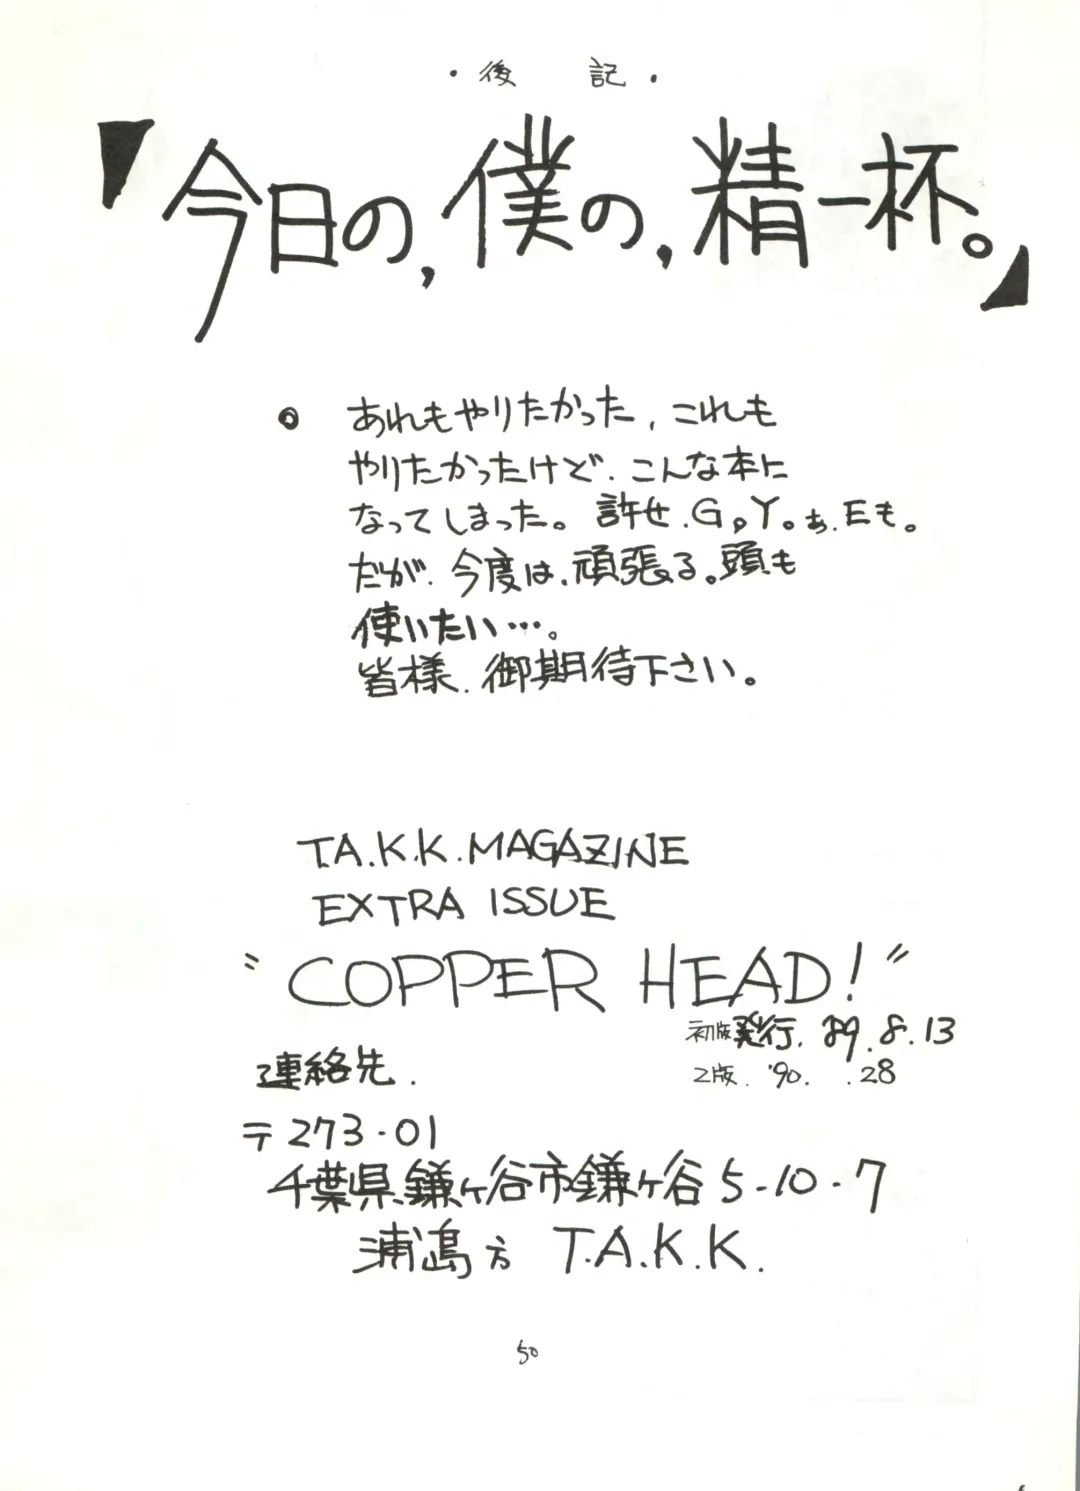 ・後　記・
『今日の,僕の,精一杯。』
○ あれもやりたかった, これも
やりたかったけど. こんな本に
なってしまった。許せ.G。Y。ぁ.Eも。
だが. 今度は.頑張る。頭も
使いたい…。
皆様. 御期待下さい。
T.A.K.K.MAGAZINE
EXTRA ISSUE
"COPPER HEAD!"
初版発行. '89.8.13
2版. '90. .28
連絡先.
〒273-01
千葉県鎌ヶ谷市鎌ヶ谷 5-10-7
浦島方 T.A.K.K.
50